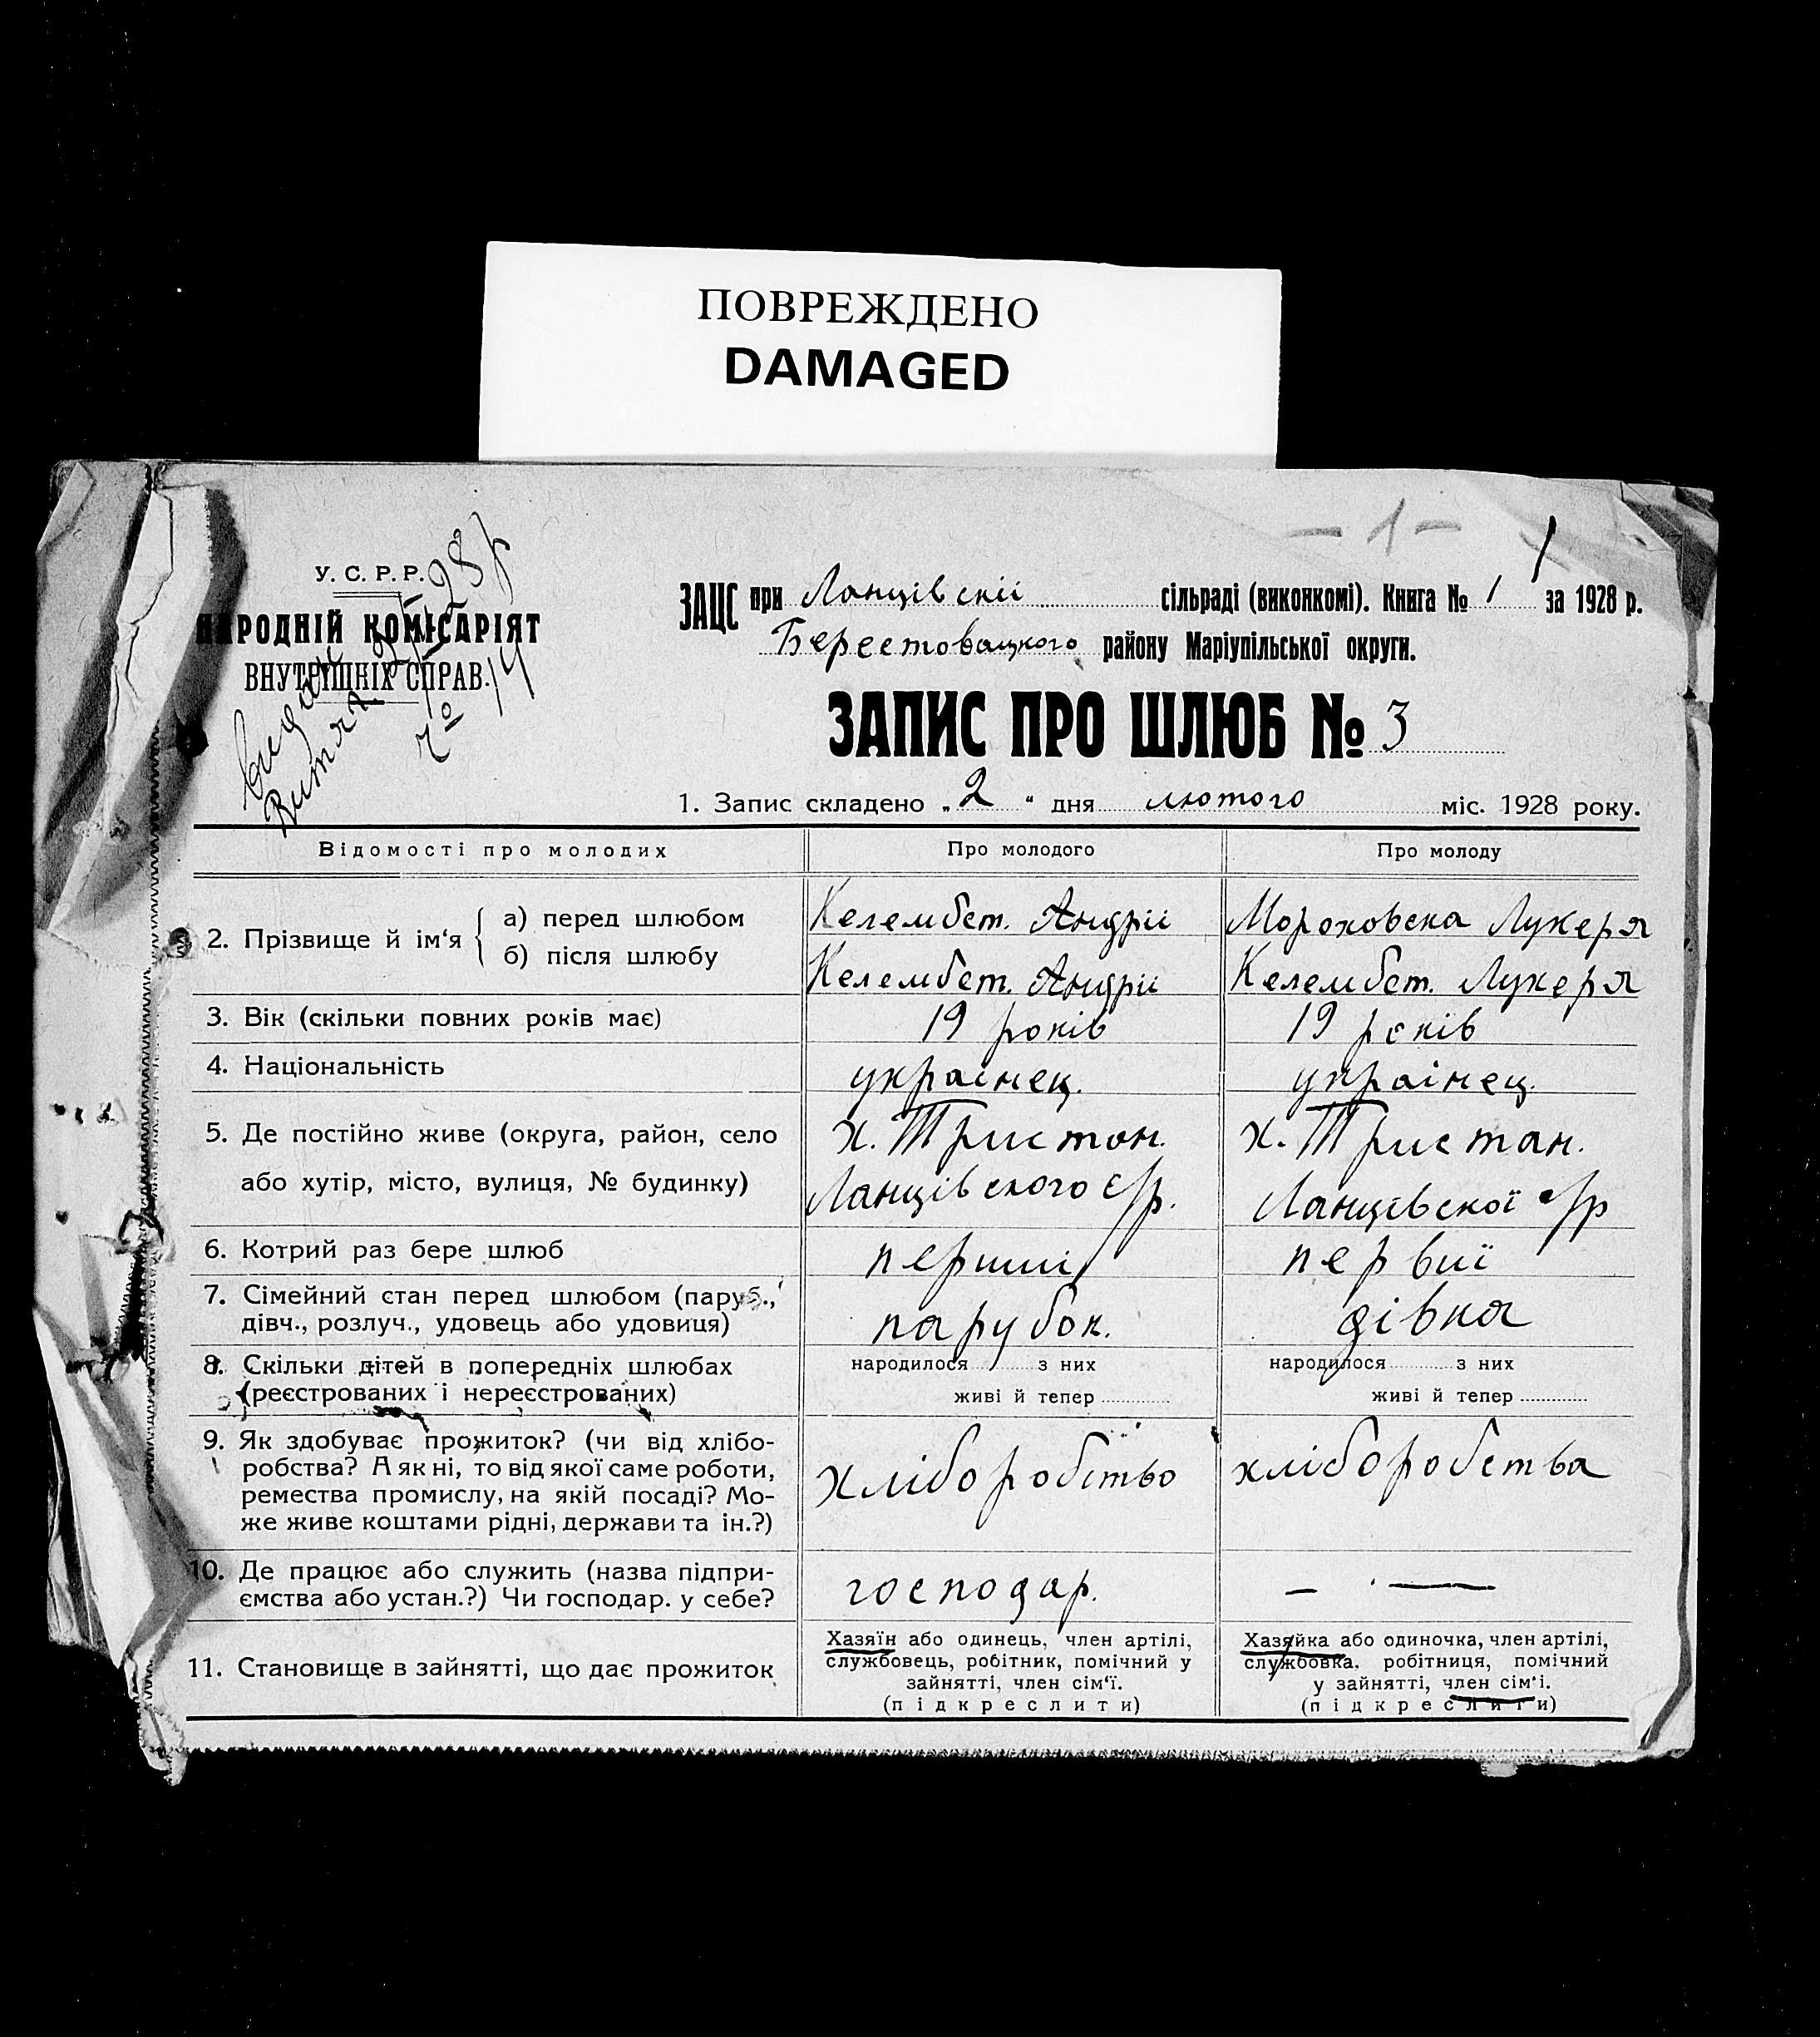 ПОВРЕЖДЕНО
DAMAGED
– 1 –
1
У. С. Р. Р.
НАРОДНІЙ КОМІСАРІЯТ
ВНУТРІШНІХ СПРАВ.
28 р
№ 14
ЗАЦС при Ланцівскіі сільраді (виконкомі). Книга № 1 за 1928 р.
Берестовацкого району Маріупільської округи.
ЗАПИС ПРО ШЛЮБ № 3
1. Запис складено „ 2 “ дня лютого міс. 1928 року.
Відомості про молодих Про молодого Про молоду
2. Прізвище й ім‘я
а) перед шлюбом Келембет. Андріі Мороховска Лукеря
б) після шлюбу Келембет. Андріи Келембет. Лукеря
3. Вік (скільки повних років має) 19 років 19 років
4. Національність украінец. украінец.
5. Де постійно живе (округа, район, село х. Тристан. х. Тристан.
або хутір, місто, вулиця, № будинку) Ланцівского с/р. Ланцівскої с/р
6. Котрий раз бере шлюб перший первиї
7. Сімейний стан перед шлюбом (паруб.,
дівч., розлуч., удовець або удовиця) парубок. дівка
8. Скільки дітей в попередніх шлюбах народилося з них народилося з них
(реєстрованих і нереєстрованих) живі й тепер живі й тепер
9. Як здобуває прожиток? (чи від хлібо-
робства? А як ні, то від якої саме роботи, хлiборобство хліборобства
ремества промислу, на якій посаді? Мо-
же живе коштами рідні, держави та ін.?)
10. Де працює або служить (назва підпри-
ємства або устан.?) Чи господар. у себе? господар. – · —
11. Становище в зайнятті, що дає прожиток
Хазяїн або одинець, член артілі,
службовець, робітник, помічний у
зайнятті, член сім‘ї.
(підкреслити)
Хазяйка або одиночка, член артілі,
службовка, робітниця, помічний
у зайнятті, член сім‘і.
(підкреслити)